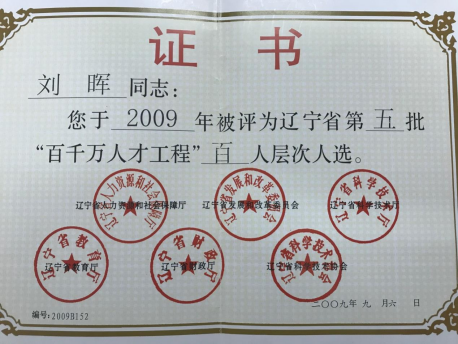 证书
刘晖同志：
您于2009年被评为辽宁省第五批
“百千万人才工程”百人层次人选。
辽宁省人力资源和社会保障厅 辽宁省发展和改革委员会 辽宁省科学技术厅
辽宁省教育厅 辽宁省财政厅 辽宁省科学技术协会
二〇〇九年九月六日
编号：2009B152